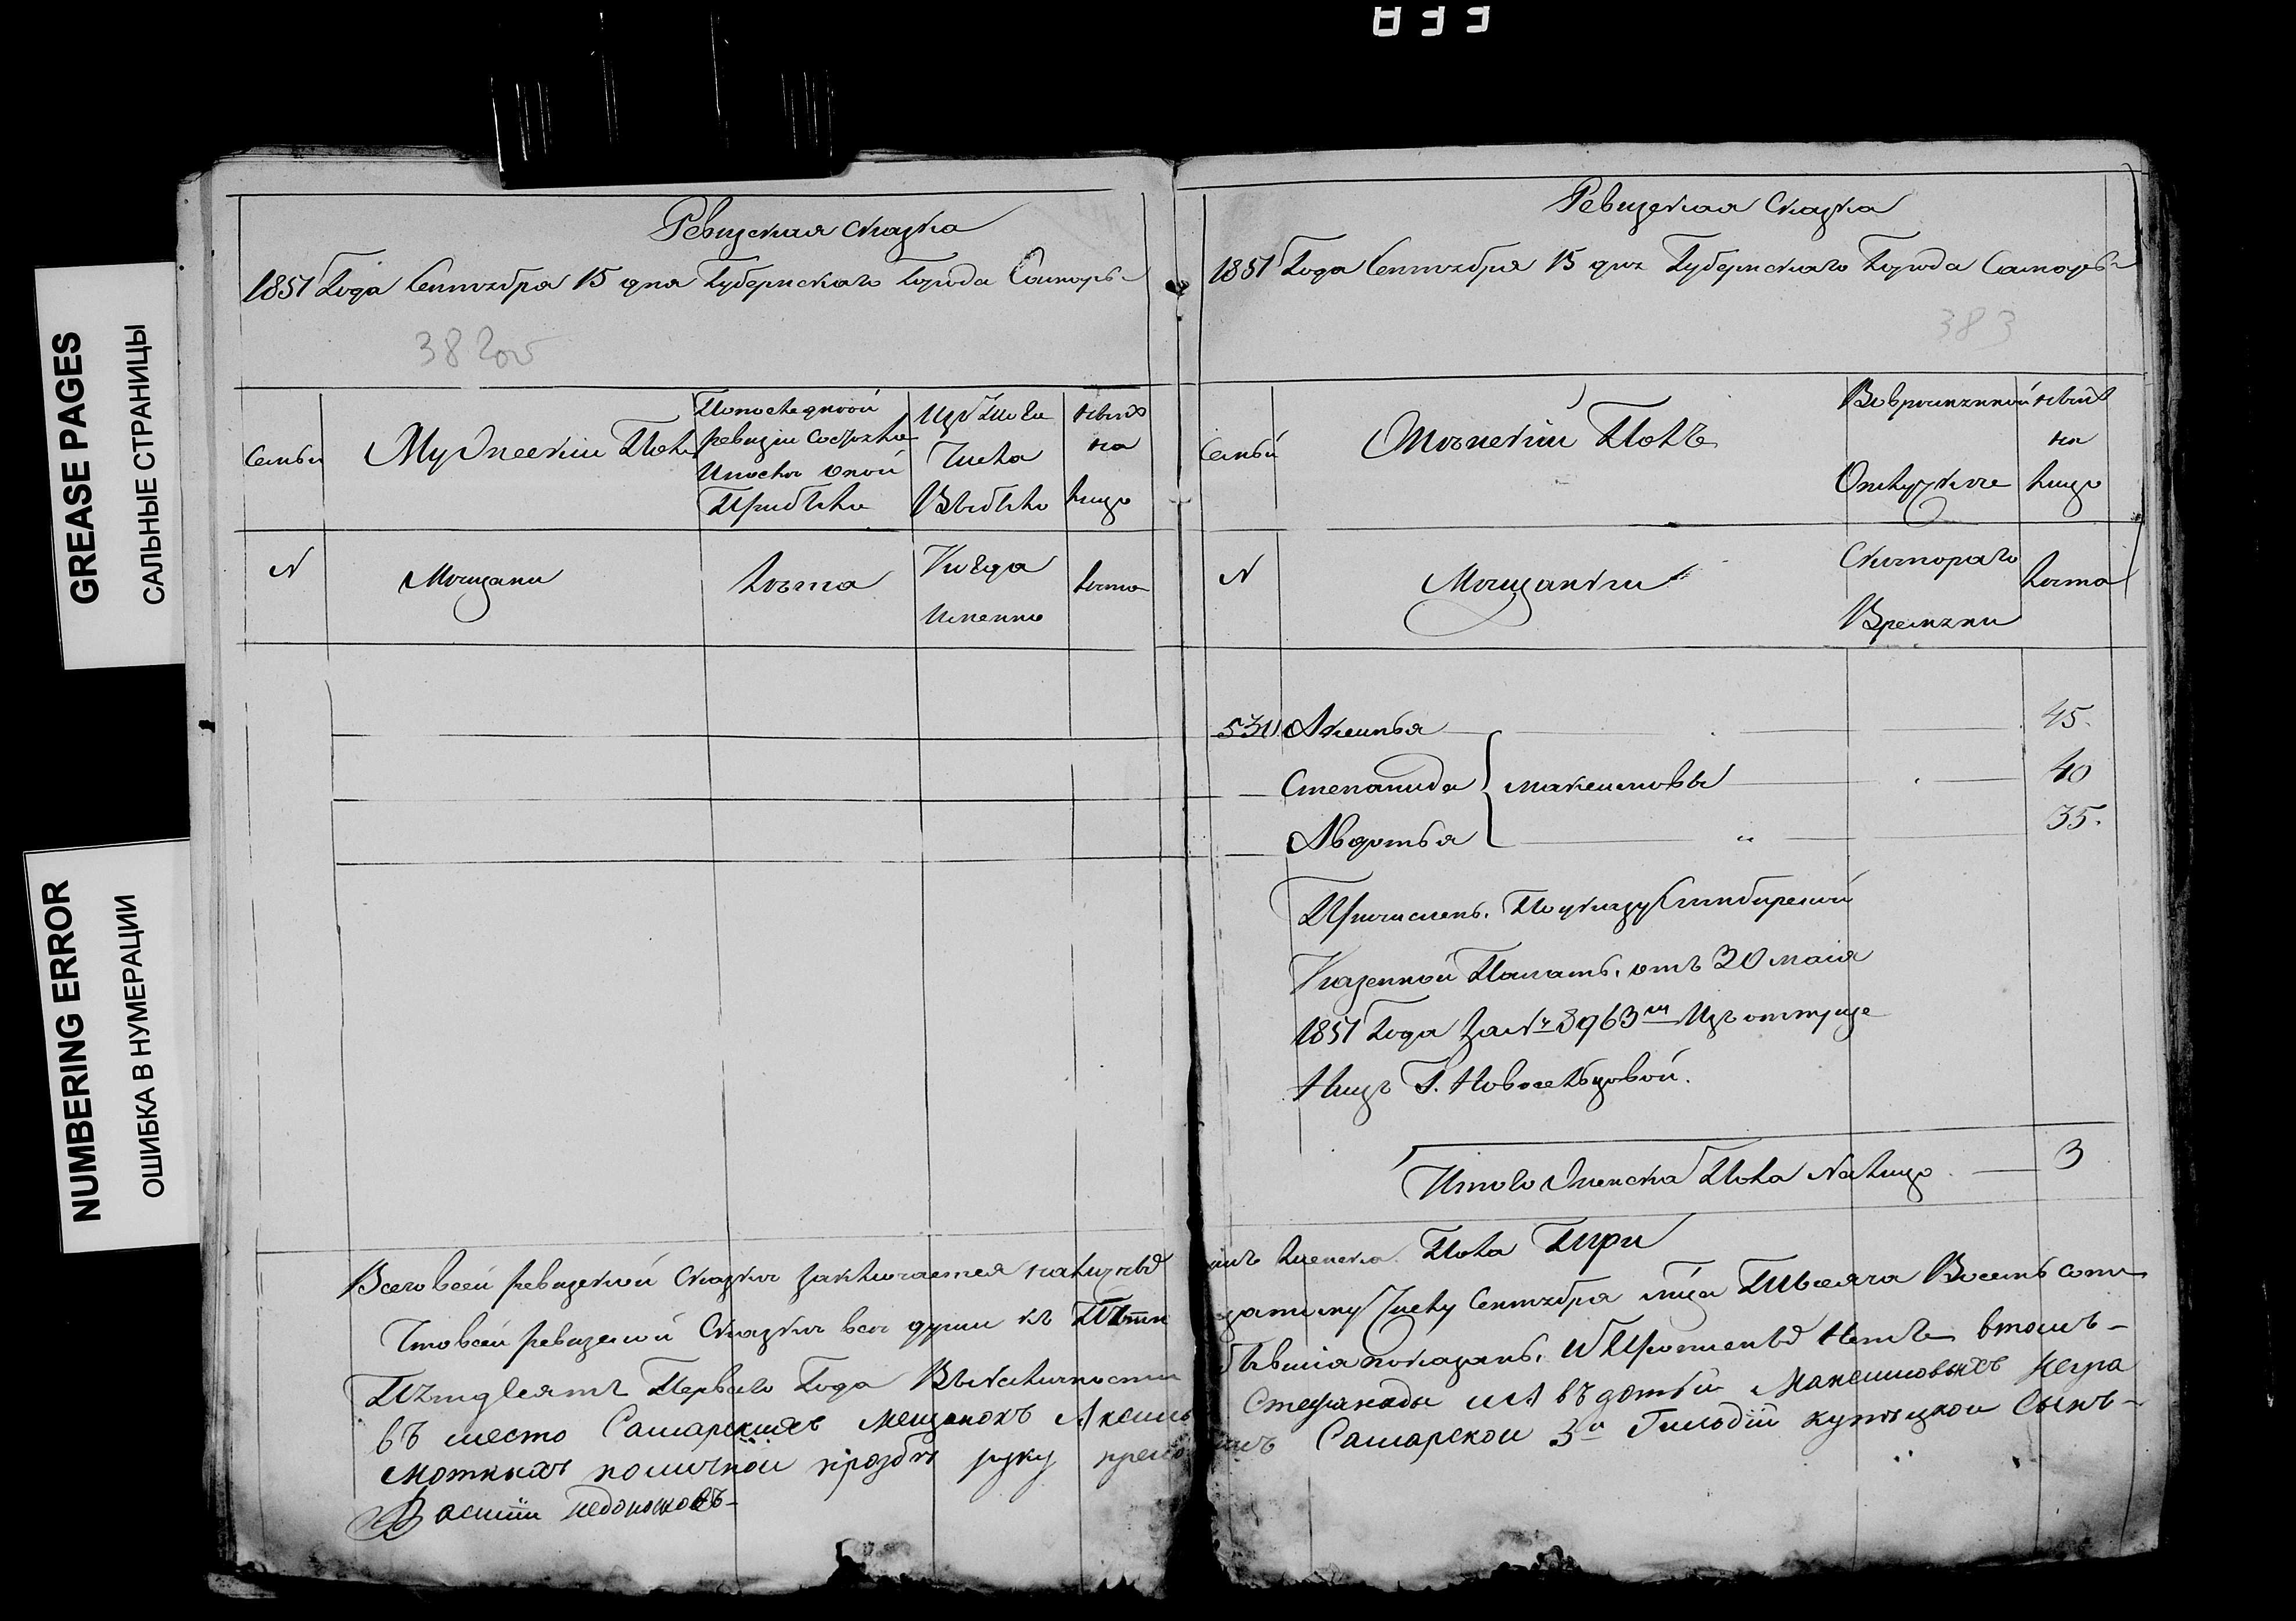 833
GREASE PAGES
САЛЬНЫЕ СТРАНИЦЫ
NUMBERING ERROR
ОШИБКА В НУМЕРАЦИИ
Ревизская сказка
1851 Года Сентября 15 дня Губернскаго Города Самары
382 об
Семьи
Мужеский Полъ
Попоследней ревизии состояло и после оной прибыло
Изъ того числа выбыло
Ныне на лицо
N
Мещани
Лета
Когда именно
Лета
Ревизская Сказка
1851 Года Сентября 15 дня Губернскаго Города Самары
383
Семьи
Женский Полъ
Вовременной Отлучке
Ныне на лицо
N
Мещанки
Скотораго Времени
Лета
Аксинья 45.
Степанида } Максимовы 40
Авдотья 35.
Причислены По указу Симбирской
Казенной Палаты отъ 30 маія
1851 Года За № 3963м Изъ отпуще
Ницъ Г. Новосельцовой.
Итого Женска Пола На лицо 3
Всего всей ревизской Сказке заключается наличныхъ
женска Пола Три
Что всей ревизской Сказке все души къ
Числу Сентября Тысяча Восемь сотъ
Пятдесятъ Перваго Года Въ наличности
бывшія показаны, и Прописныхъ Нетъ втомъ-
въ место Самарскихъ мещанокъ Аксиньи
Степаниды и Авъдотьи Максимовыхъ негра
мотныхъ поличной прозбе руку
Самарской 3й Гильдии купецкой Сынъ-
Василий Недоношковъ-